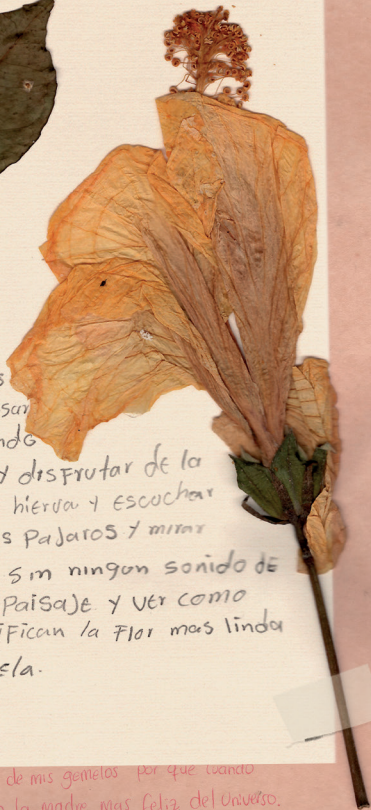 s
sar
ndo
y disfrutar de la
hierva y escuchar
s Pajaros y mirar
sin ningun sonido de
Paisaje y ver como
ifican la Flor mas linda
ela.
de mis gemelos por que cuando
la madre mas feliz del Universo.